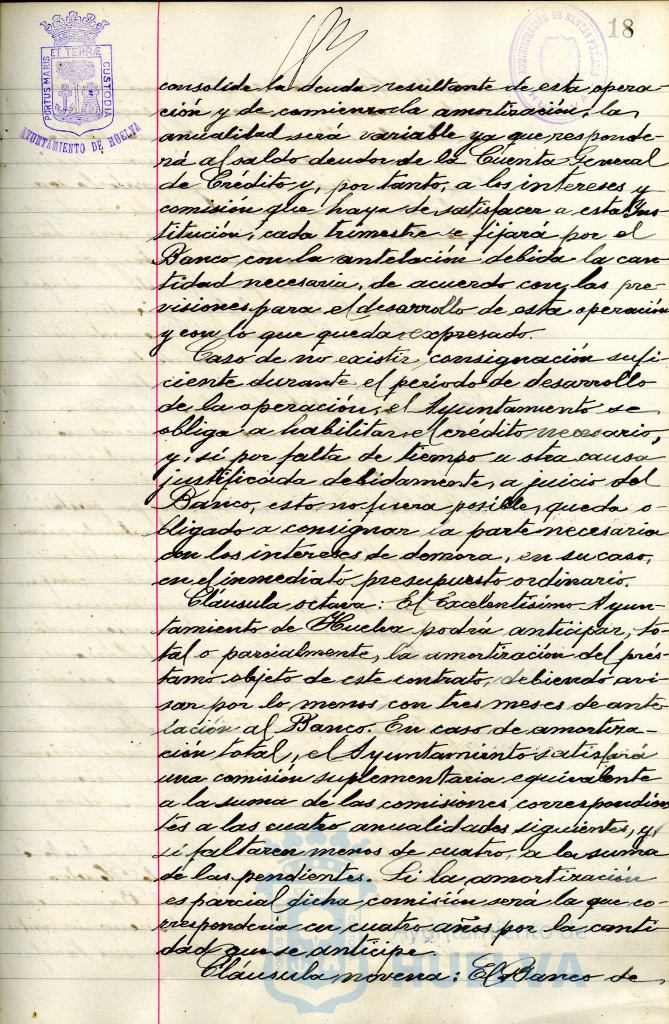 18
PORTUS MARIS ET TERRÆ CUSTODIA
AYUNTAMIENTO DE HUELVA
ADMINISTRACIÓN DE RENTAS PÚBLICAS
consolide la deuda resultante de esta opera-
ción y de comienzo la amortización, la
anualidad será variable ya que responde-
rá al saldo deudor de la Cuenta General
de Crédito y, por tanto, a los intereses y
comisión que haya de satisfacer a esta Ins-
titución; cada trimestre se fijará por el
Banco con la antelación debida la can-
tidad necesaria, de acuerdo con las pre-
visiones para el desarrollo de esta operación
y con lo que queda expresado.
Caso de no existir consignación sufi-
ciente durante el período de desarrollo
de la operación, el Ayuntamiento se
obliga a habilitar el crédito necesario,
y, si por falta de tiempo u otra causa
justificada debidamente, a juicio del
Banco, esto no fuera posible, queda o-
bligado a consignar la parte necesaria
con los intereses de demora, en su caso,
en el inmediato presupuesto ordinario.
Cláusula octava: El Excelentísimo Ayun-
tamiento de Huelva podrá anticipar, to-
tal o parcialmente, la amortización del prés-
tamo objeto de este contrato, debiendo avi-
sar por lo menos con tres meses de ante-
lación al Banco. En caso de amortiza-
ción total, el Ayuntamiento satisfará
una comisión suplementaria equivalente
a la suma de las comisiones correspondien-
tes a las cuatro anualidades siguientes, y
si faltaren menos de cuatro, a la suma
de las pendientes. Si la amortización
es parcial dicha comisión será la que co-
rrespondería en cuatro años por la canti-
dad que se anticipe.
Cláusula novena: El Banco de
Ayuntamiento de
HUELVA